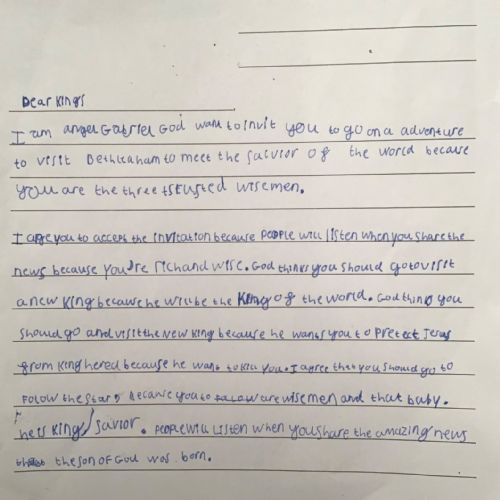 Dear Kings
I am angel Gabriel God want to invit you to go on a adventure
to visit Bethleaham to meet the saivior of the world because
you are the three trusted wisemen.
I agre you to accept the invitation because people will listen when you share the
news because you're rich and wise. God thinks you should go to visit
a new King because he will be the King of the world. God thing you
should go and visit the new king because he wants you to pretect Jesus
from King hered because he want to kill you. I agree that you should go to
Folow the star, because you to are wisemen and that baby.
he is King/savior. people will listen when you share the amazing news
the son of God was born.